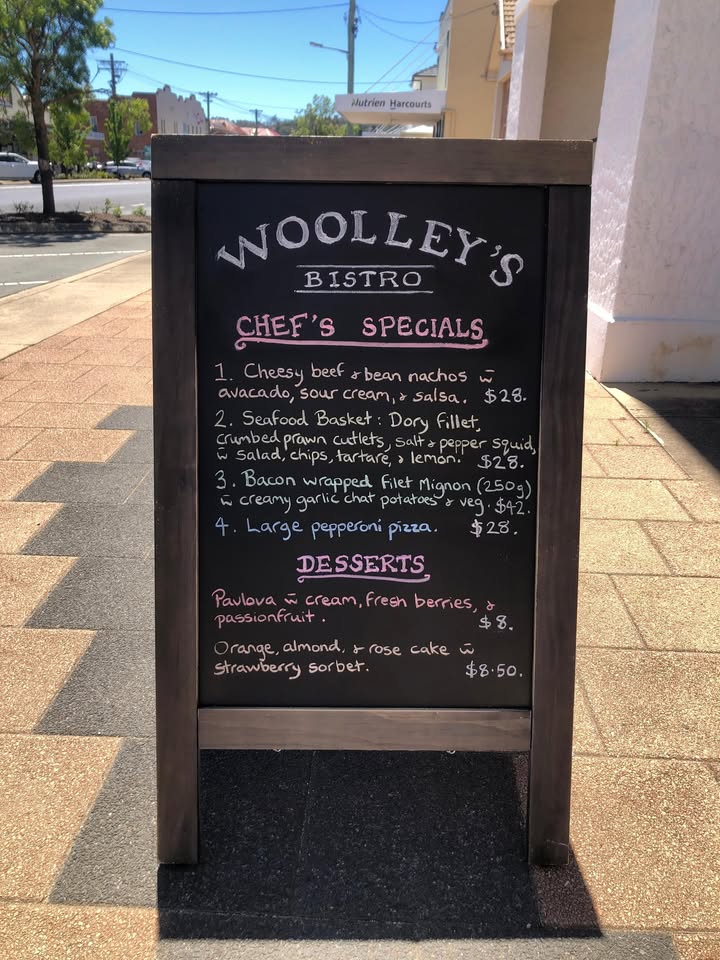 Nutrien Harcourts
WOOLLEY'S
BISTRO
CHEF'S SPECIALS
1. Cheesy beef & bean nachos w̄
avacado, sour cream, & salsa. $28.
2. Seafood Basket: Dory fillet,
crumbed prawn cutlets, salt & pepper squid,
w̄ salad, chips, tartare, & lemon. $28.
3. Bacon wrapped filet Mignon (250g)
w̄ creamy garlic chat potatoes & veg. $42.
4. Large pepperoni pizza. $28.
DESSERTS
Pavlova w̄ cream, fresh berries, &
passionfruit. $8.
Orange, almond, & rose cake w̄
strawberry sorbet. $8.50.